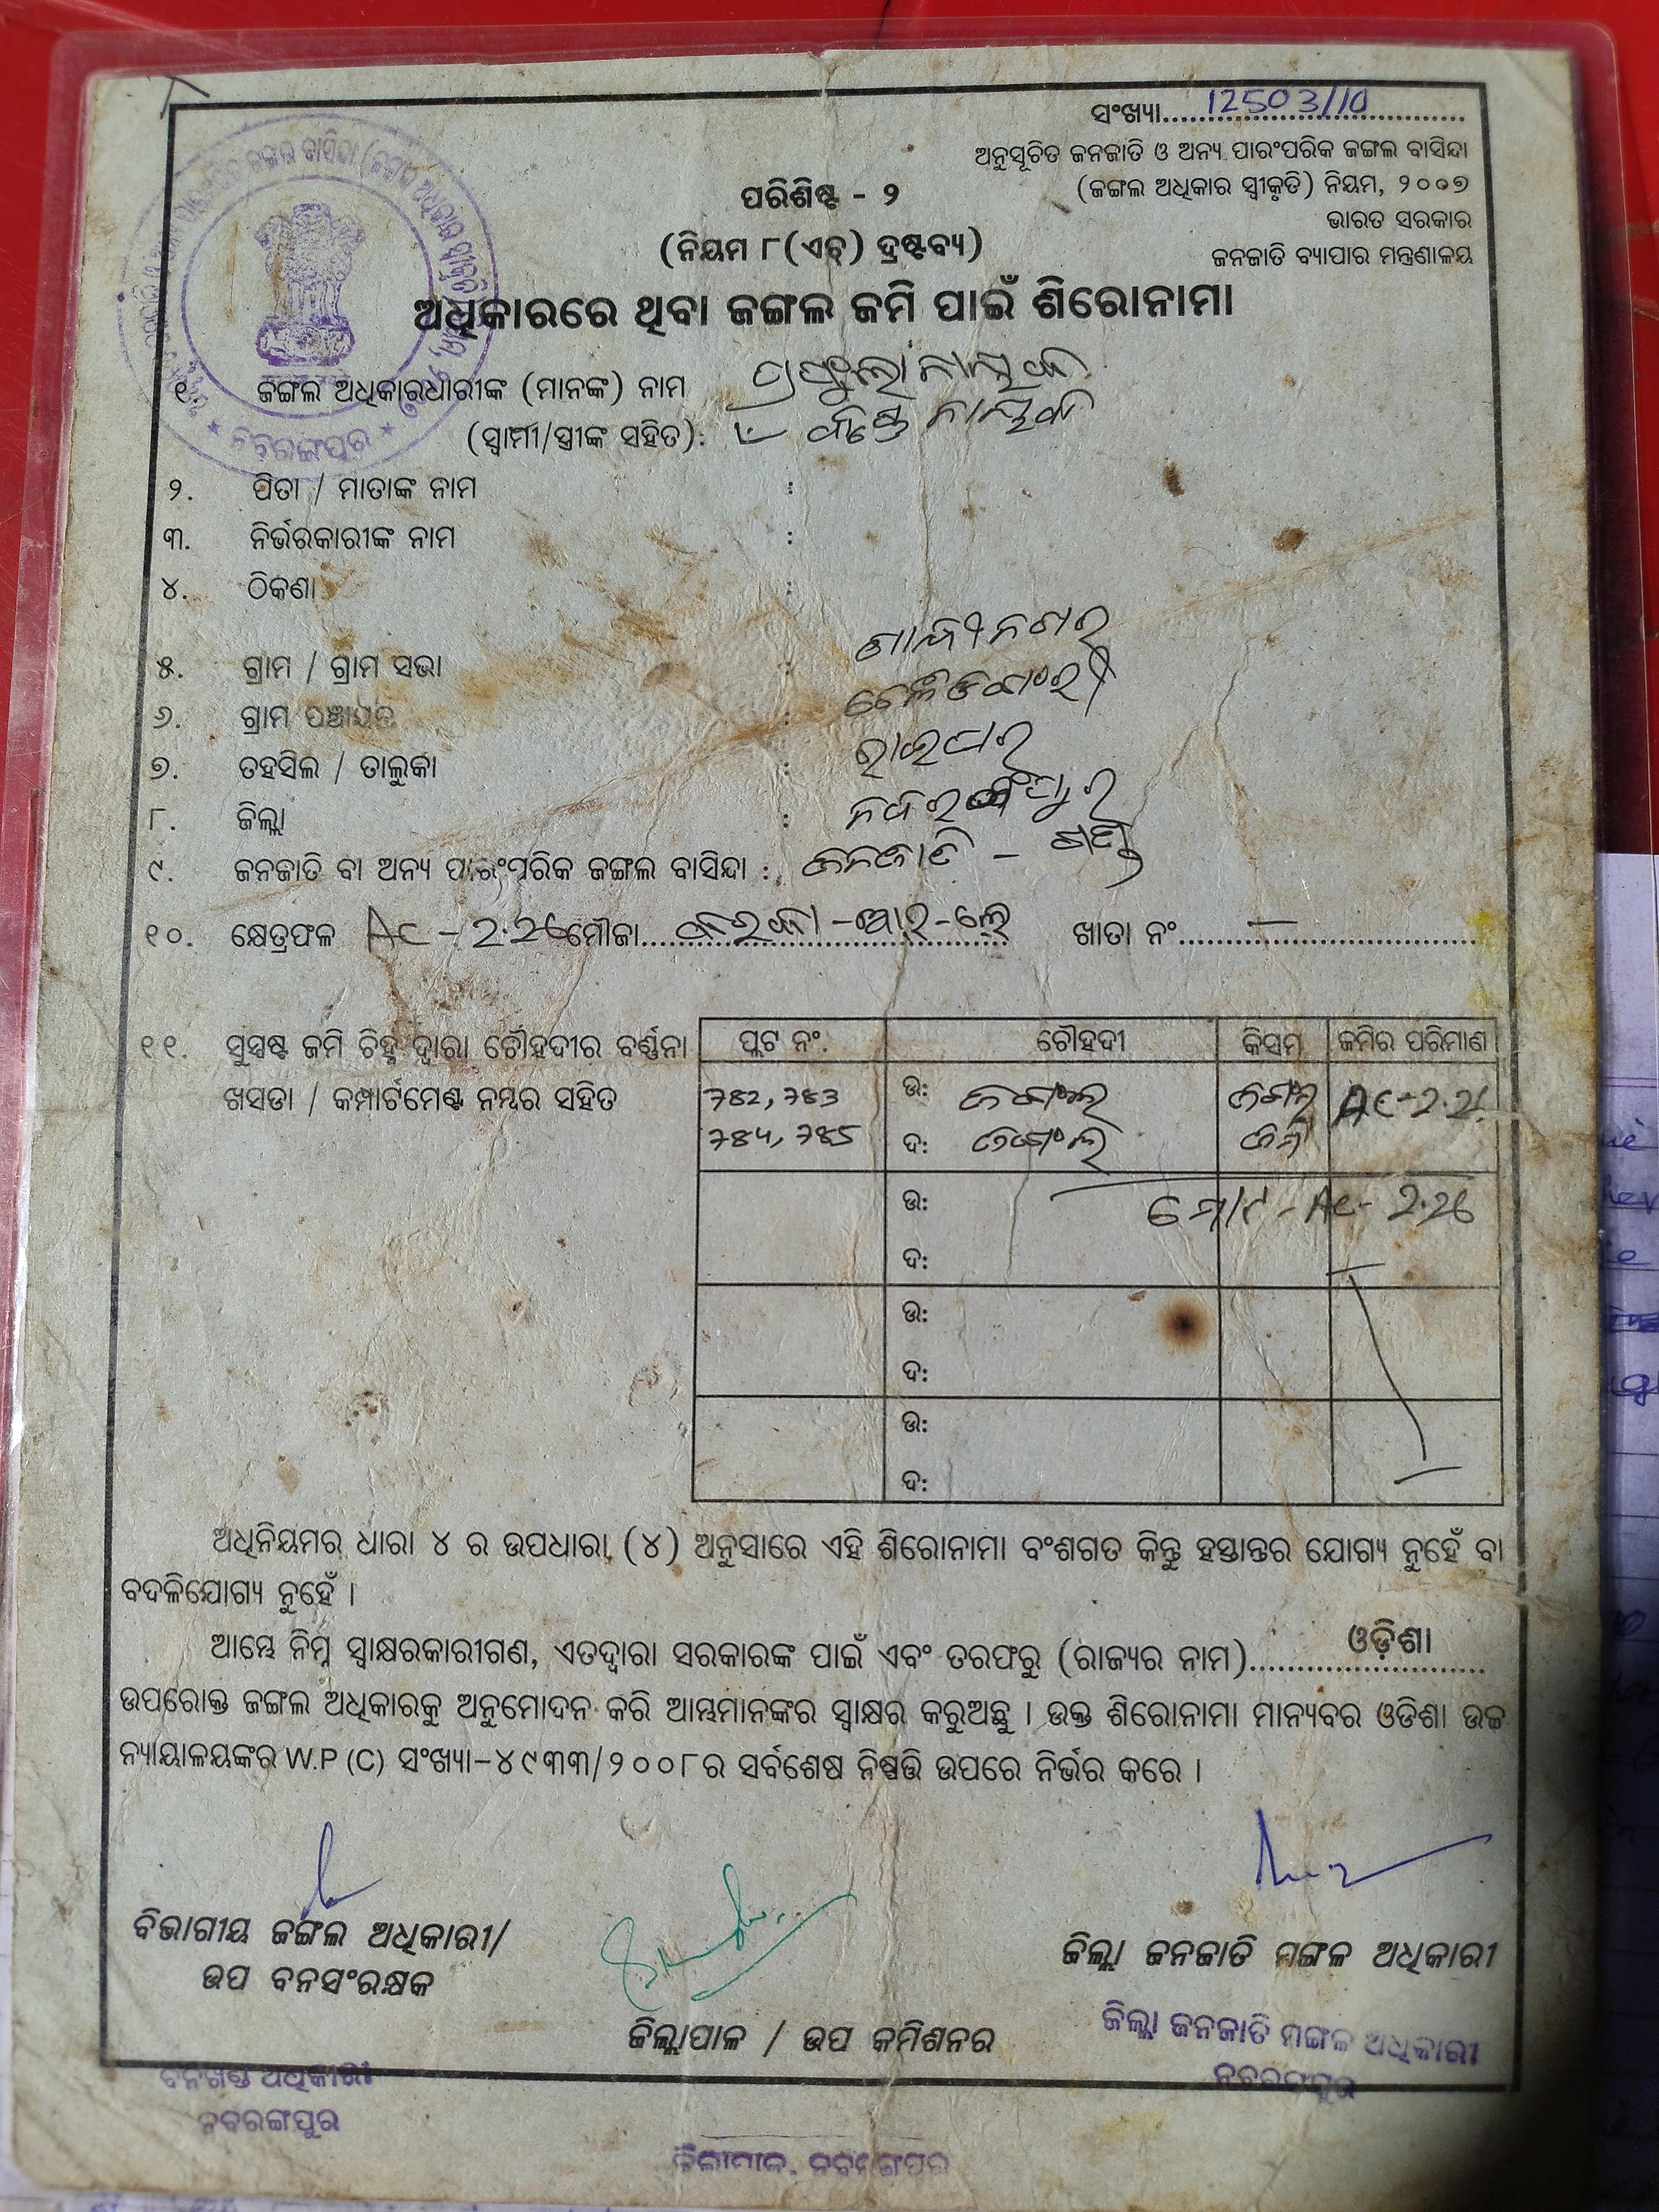 ସଂଖ୍ୟା.... 12503/10
ଅନୁସୂଚିତ ଜନଜାତି ଓ ଅନ୍ୟ ପାରଂପରିକ ଜଙ୍ଗଲ ବାସିନ୍ଦା
(ଜଙ୍ଗଲ ଅଧିକାର ସ୍ୱୀକୃତି) ନିୟମ, ୨୦୦୭
ଭାରତ ସରକାର
ଜନଜାତି ବ୍ୟାପାର ମନ୍ତ୍ରଣାଳୟ
ପରିଶିଷ୍ଟ - ୨
(ନିୟମ ୮(ଏଚ୍) ଦ୍ରଷ୍ଟବ୍ୟ)
ଅଧିକାରରେ ଥିବା ଜଙ୍ଗଲ ଜମି ପାଇଁ ଶିରୋନାମା
୧. ଜଙ୍ଗଲ ଅଧିକାରଧାରୀଙ୍କ (ମାନଙ୍କ) ନାମ
(ସ୍ୱାମୀ/ସ୍ତ୍ରୀଙ୍କ ସହିତ):
୨. ପିତା / ମାତାଙ୍କ ନାମ :
୩. ନିର୍ଭରକାରୀଙ୍କ ନାମ :
୪. ଠିକଣା :
୫. ଗ୍ରାମ / ଗ୍ରାମ ସଭା : ଗାନ୍ଧୀନଗର
୬. ଗ୍ରାମ ପଞ୍ଚାୟତ :
୭. ତହସିଲ / ତାଲୁକା : ରାଇଘର
୮. ଜିଲ୍ଲା : ନବରଙ୍ଗପୁର
୯. ଜନଜାତି ବା ଅନ୍ୟ ପାରଂପରିକ ଜଙ୍ଗଲ ବାସିନ୍ଦା : ଜନଜାତି - ଗଣ୍ଡ
୧୦. କ୍ଷେତ୍ରଫଳ AC - 2.26 ମୌଜା.... ଖାତା ନଂ.... -
୧୧. ସୁସ୍ପଷ୍ଟ ଜମି ଚିହ୍ନ ଦ୍ୱାରା ଚୌହଦୀର ବର୍ଣ୍ଣନା
ଖସଡା / କମ୍ପାର୍ଟମେଣ୍ଟ ନମ୍ବର ସହିତ
ପ୍ଲଟ ନଂ. ଚୌହଦୀ କିସମ ଜମିର ପରିମାଣ
ଉ: ଜଙ୍ଗଲ ଜଙ୍ଗଲ AC-2.26
ଦ: ଜଙ୍ଗଲ ଜମି
ଉ: ମୋଟ - AC- 2.26
ଦ:
ଉ:
ଦ:
ଉ:
ଦ:
ଅଧିନିୟମର ଧାରା ୪ ର ଉପଧାରା (୪) ଅନୁସାରେ ଏହି ଶିରୋନାମା ବଂଶଗତ କିନ୍ତୁ ହସ୍ତାନ୍ତର ଯୋଗ୍ୟ ନୁହେଁ ବା
ବଦଳିଯୋଗ୍ୟ ନୁହେଁ ।
ଆମ୍ଭେ ନିମ୍ନ ସ୍ୱାକ୍ଷରକାରୀଗଣ, ଏତଦ୍ୱାରା ସରକାରଙ୍କ ପାଇଁ ଏବଂ ତରଫରୁ (ରାଜ୍ୟର ନାମ).... ଓଡ଼ିଶା
ଉପରୋକ୍ତ ଜଙ୍ଗଲ ଅଧିକାରକୁ ଅନୁମୋଦନ କରି ଆମ୍ଭମାନଙ୍କର ସ୍ୱାକ୍ଷର କରୁଅଛୁ । ଉକ୍ତ ଶିରୋନାମା ମାନ୍ୟବର ଓଡିଶା ଉଚ୍ଚ
ନ୍ୟାୟାଳୟଙ୍କର W.P (C) ସଂଖ୍ୟା-୪୯୩୩/୨୦୦୮ର ସର୍ବଶେଷ ନିଷ୍ପତ୍ତି ଉପରେ ନିର୍ଭର କରେ ।
ବିଭାଗୀୟ ଜଙ୍ଗଲ ଅଧିକାରୀ/
ଉପ ବନସଂରକ୍ଷକ
ଜିଲ୍ଲାପାଳ / ଉପ କମିଶନର
ଜିଲ୍ଲା ଜନଜାତି ମଙ୍ଗଳ ଅଧିକାରୀ
ଜିଲ୍ଲା ଜନଜାତି ମଙ୍ଗଳ ଅଧିକାରୀ
ନବରଙ୍ଗପୁର
ବନଖଣ୍ଡ ଅଧିକାରୀ
ନବରଙ୍ଗପୁର
ଜିଲ୍ଲାପାଳ, ନବରଙ୍ଗପୁର